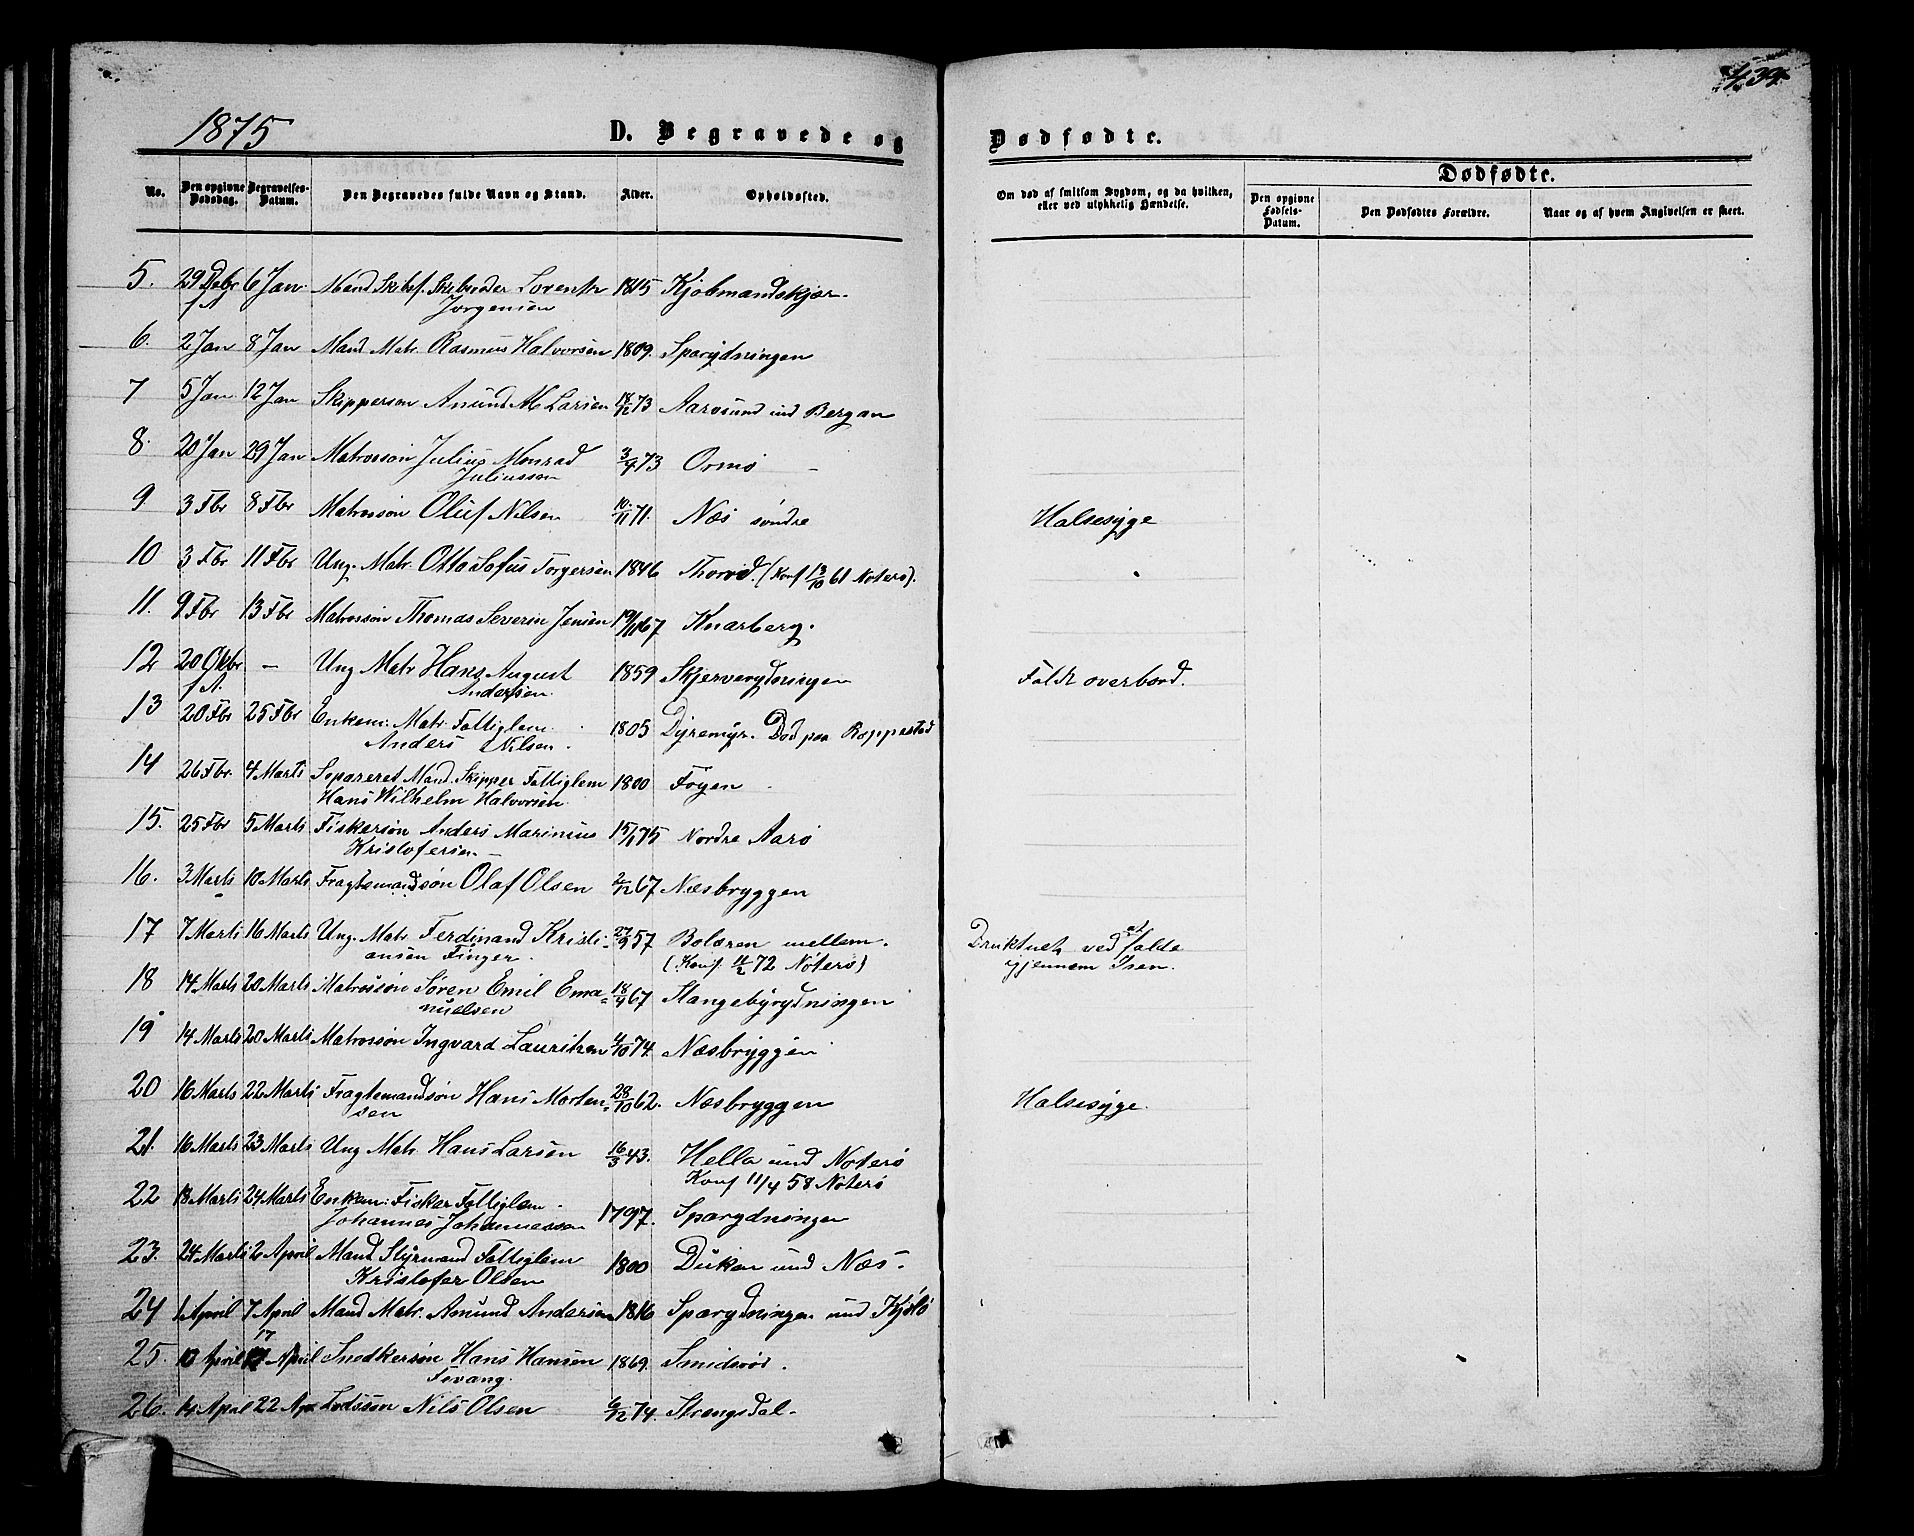 439
1875 D. Begravede og Dødfødte.
Dødfødte.
No. Den opgivne Dødsdag. Begravelses-Datum. Den Begravedes fulde Navn og Stand. Alder. Opholdssted. Om død af smitsom Sygdom, og da hvilken, eller ved ulykkelig Hændelse. Den opgivne Fødsels-Datum. Den Dødfødtes Forældre. Naar og af hvem Angivelsen er skeet.
5. 29 Debr 6 Jan Mand Skibsf. Skibsreder Lorentz 1815 Kjøbmandskjær.
f A Jørgensen
6. 2 Jan 8 Jan Mand Matr. Rasmus Halvorsen 1809. Sparydningen
7 5 Jan 12 Jan Skippersøn Anund M Larsen 18/12 73 Aarøsund und Bergan
8. 20 Jan 29 Jan Matrossøn Julius Monrad 3/9 73 Ormø
Juliussen
9 3 Fbr 8 Fbr Matrossøn Oluf Nilsen 10/11 71. Næs søndre Halsesyge
10 3 Fbr 11 Fbr Ung. Matr. Otto Sofus Torgersen 1846 Thorød. (Konf 13/10 61 Nøterø).
11. 9 Fbr 13 Fbr Matrossøn Thomas Severin Jensen 19/11 67 Knarberg.
12 20 Okbr — Ung Matr Hans August 1859 Skjerverydningen Faldt overbord.
f A. Andersen.
13 20 Fbr 25 Fbr Enkem: Matr. Fattiglem 1805 Dyremyr. Død paa Roppestad
Anders Nilsen.
14 26 Fbr. 4 Marts Separeret Mand. Skipper Fattiglem 1800 Føyen
Hans Wilhelm Halvorsen.
15. 25 Fbr 5 Marts Fiskersøn Anders Marinius 15/1 75 Nordre Aarø
Kristofersen
16. 3 Marts 10 Marts Fragtemandsøn Olaf Olsen 2/12 67 Næsbryggen
17 7 Marts 16 Marts Ung. Matr. Ferdinand Kristi- 27/9 57 Bolæren mellem. Druktnet ved at falde
ansen Finger. (Konf. 11/2 72 Nøterø) igjennem Isen.
18 14 Marts 20 Marts Matrossøn Søren Emil Ema= 18/4 67 Stangebyrydningen
nuelsen
19 14 Marts 20 Marts Matrossøn Ingvard Lauritzen 4/10 74. Næsbryggen
20 16 Marts 22 Marts Fragtemandsøn Hans Morten= 28/10 62. Næsbryggen Halsesyge.
sen
21. 16 Marts 23 Marts Ung Matr. Hans Larsen 16/3 43. Hella und Nøterø
Konf 11/4 58 Nøterø
22 18 Marts 24 Marts Enkem: Fisker Fattiglem 1797. Sparydningen
Johannes Johannessen
23. 24 Marts 2 April Mand Styrmand Fattiglem 1800 Duken und Næs.
Kristofer Olsen
24 1 April 7 April Mand Matr. Amund Andersen 1816 Sparydningen und Kjøló
25. 10 April 17 April Snedkersøn Hans Hansen 1869. Smidsrød.
Fevang.
26. 14 April 22 Apr Lodssøn Nils Olsen 6/12 74. Strengsdal.